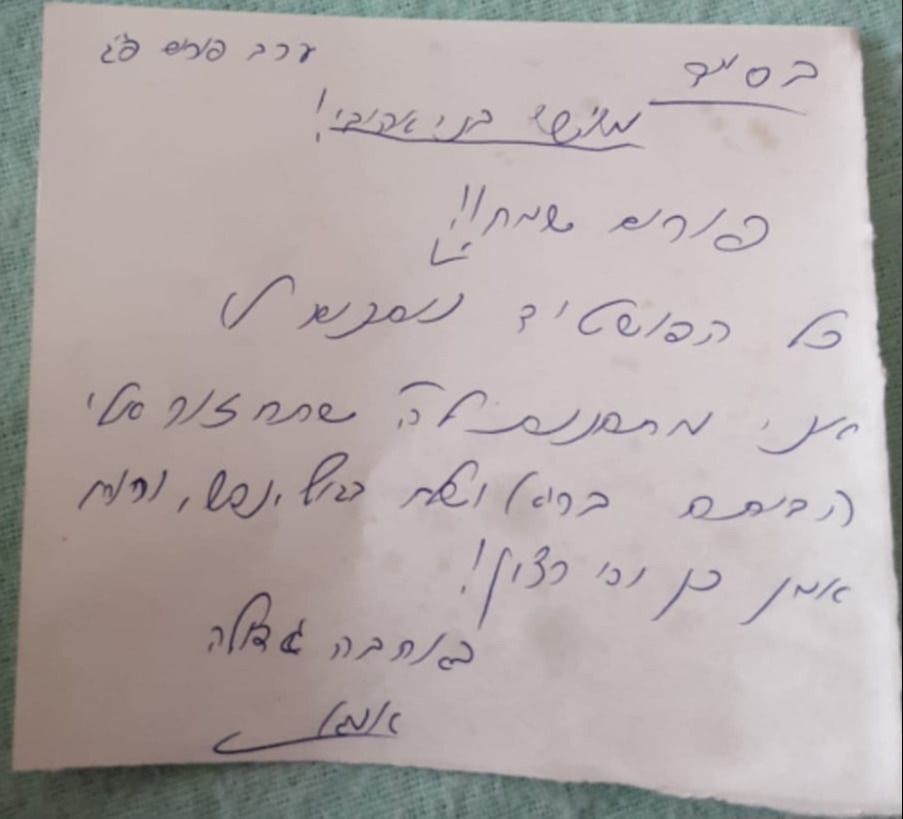 בס"ד ערב פורים פ"ג
בני אהובי!
פורים שמח!!
כל
אני לה' שתחזור אלי
הביתה בריא ושלם בגוף, נפש, ורוח
אמן כן יהי רצון!
באהבה גדולה
אמא